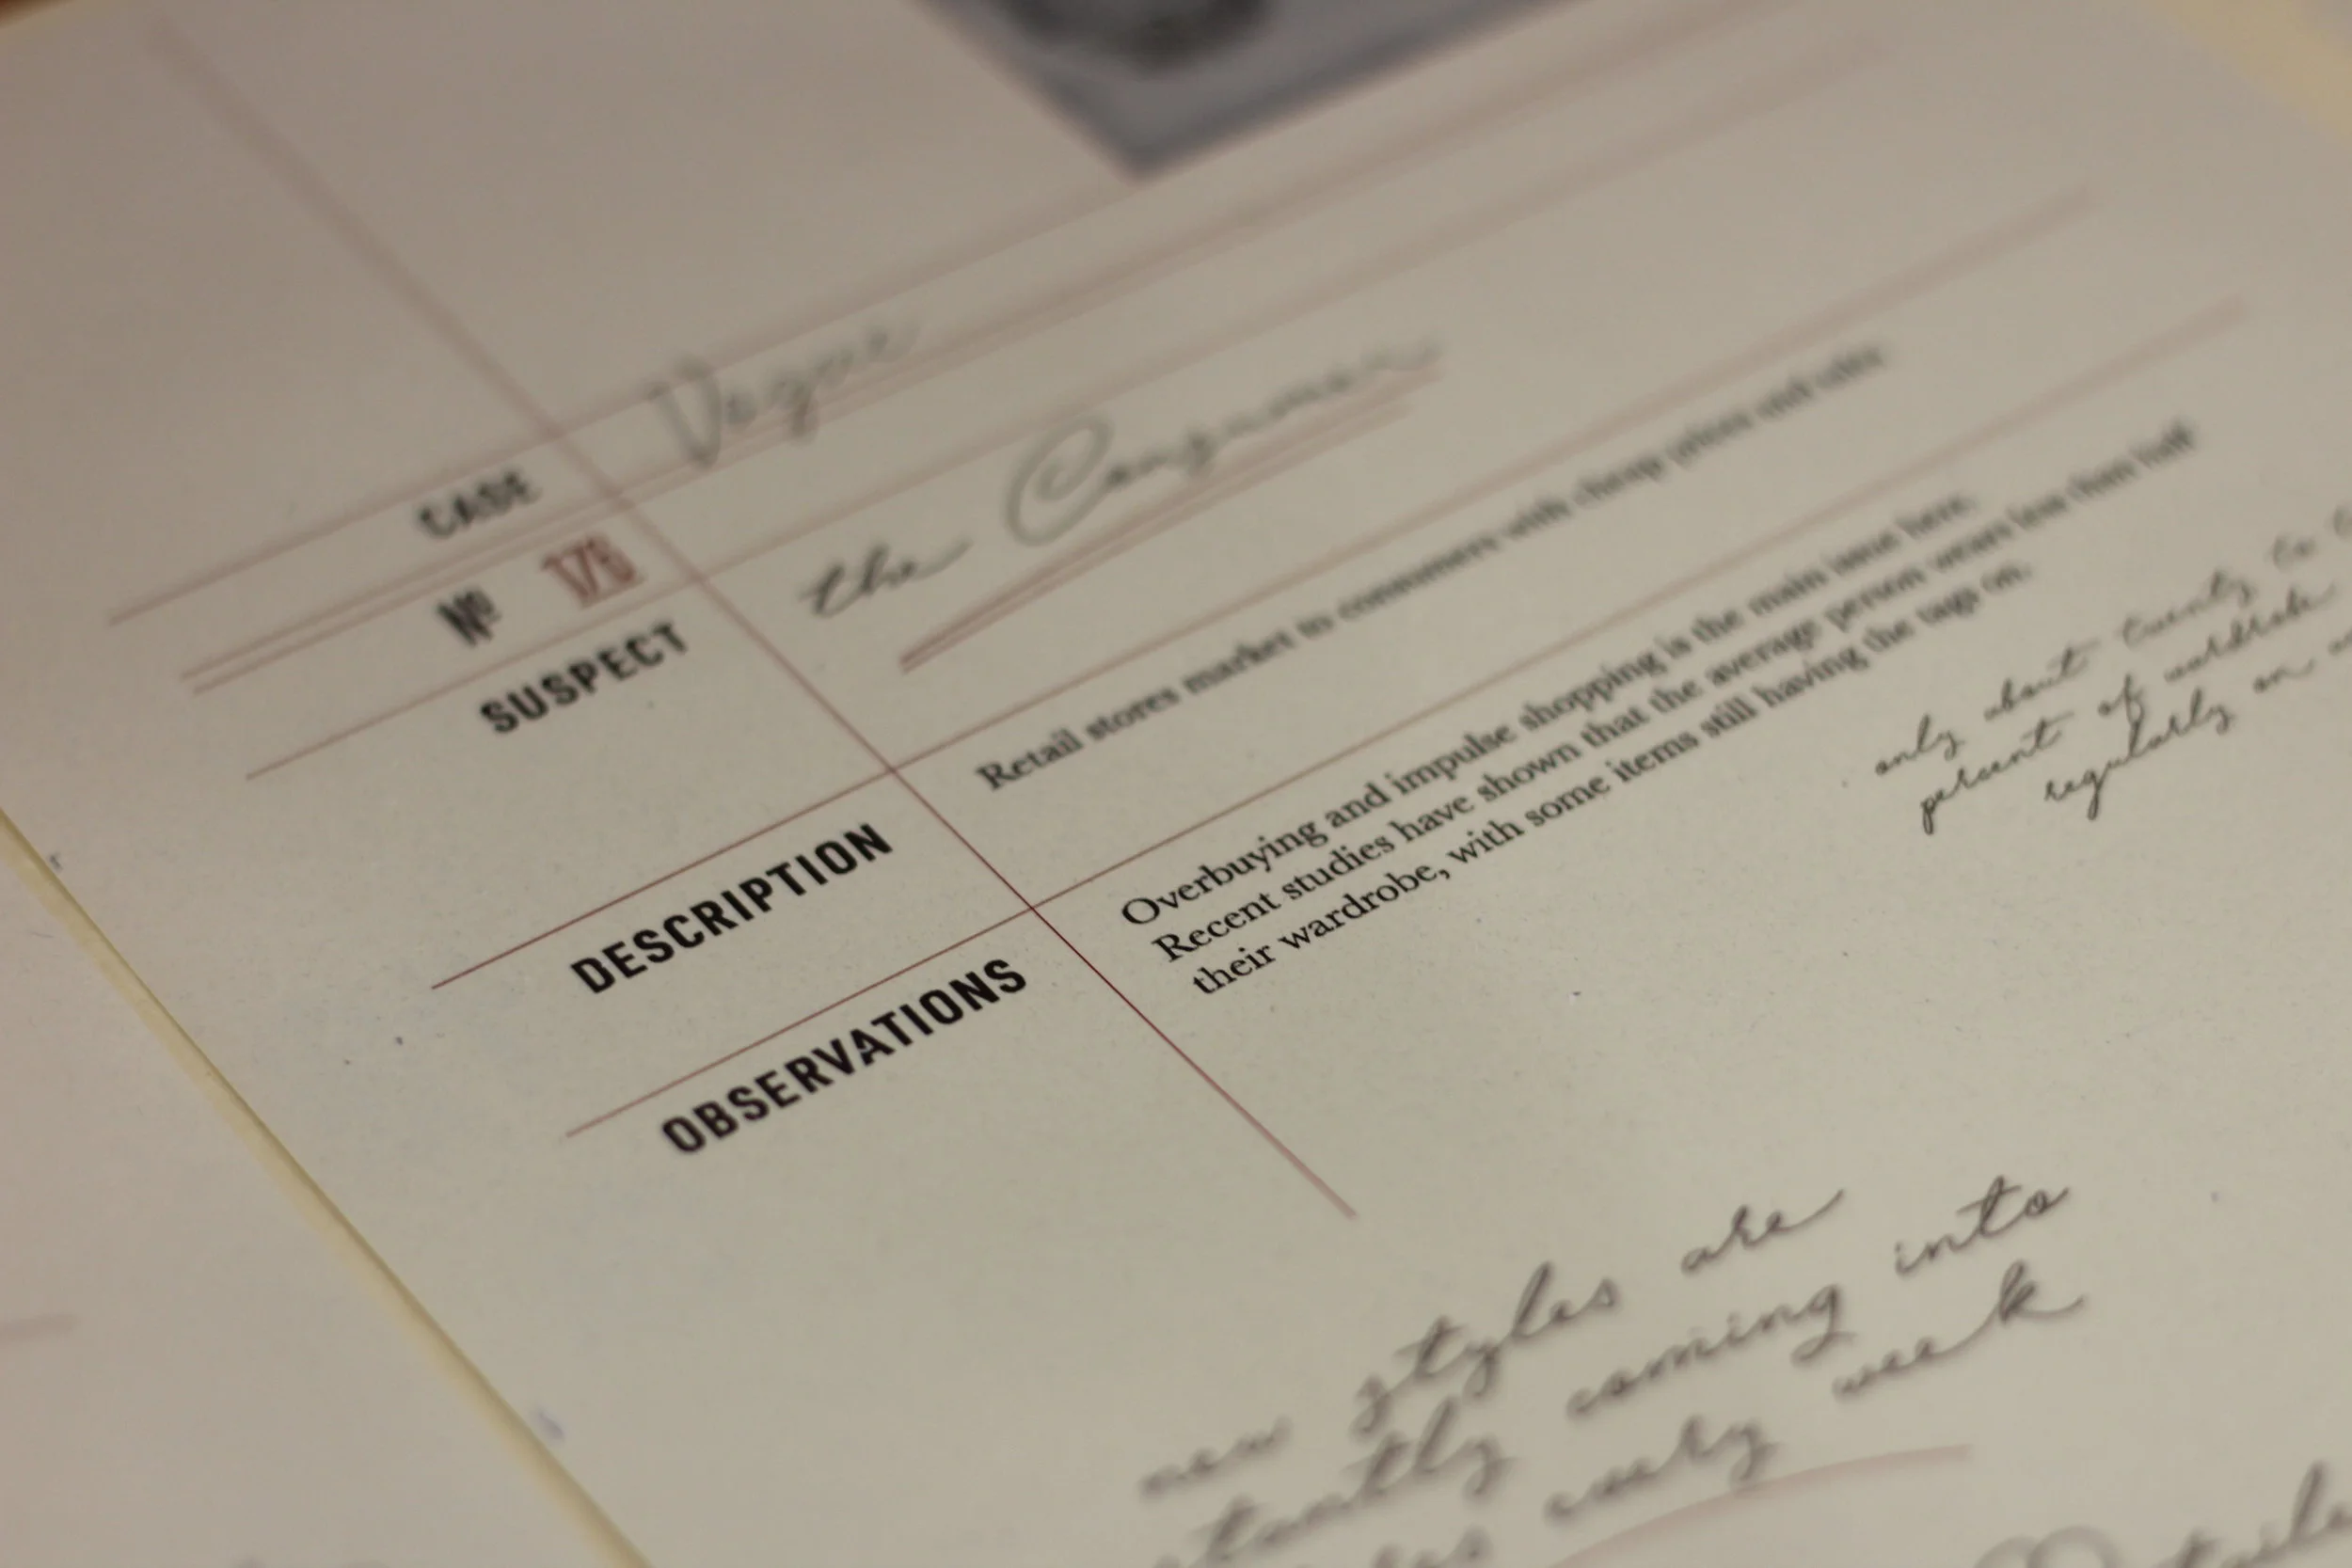 CASE Vogue
Nº 176
SUSPECT the Consumer
DESCRIPTION Retail stores market to consumers with cheap prices and
OBSERVATIONS Overbuying and impulse shopping is the main issue here.
Recent studies have shown that the average person wears less than half
their wardrobe, with some items still having the tags on.
only about twenty to
percent of wardrobe
regularly on
new styles are
coming into
every week